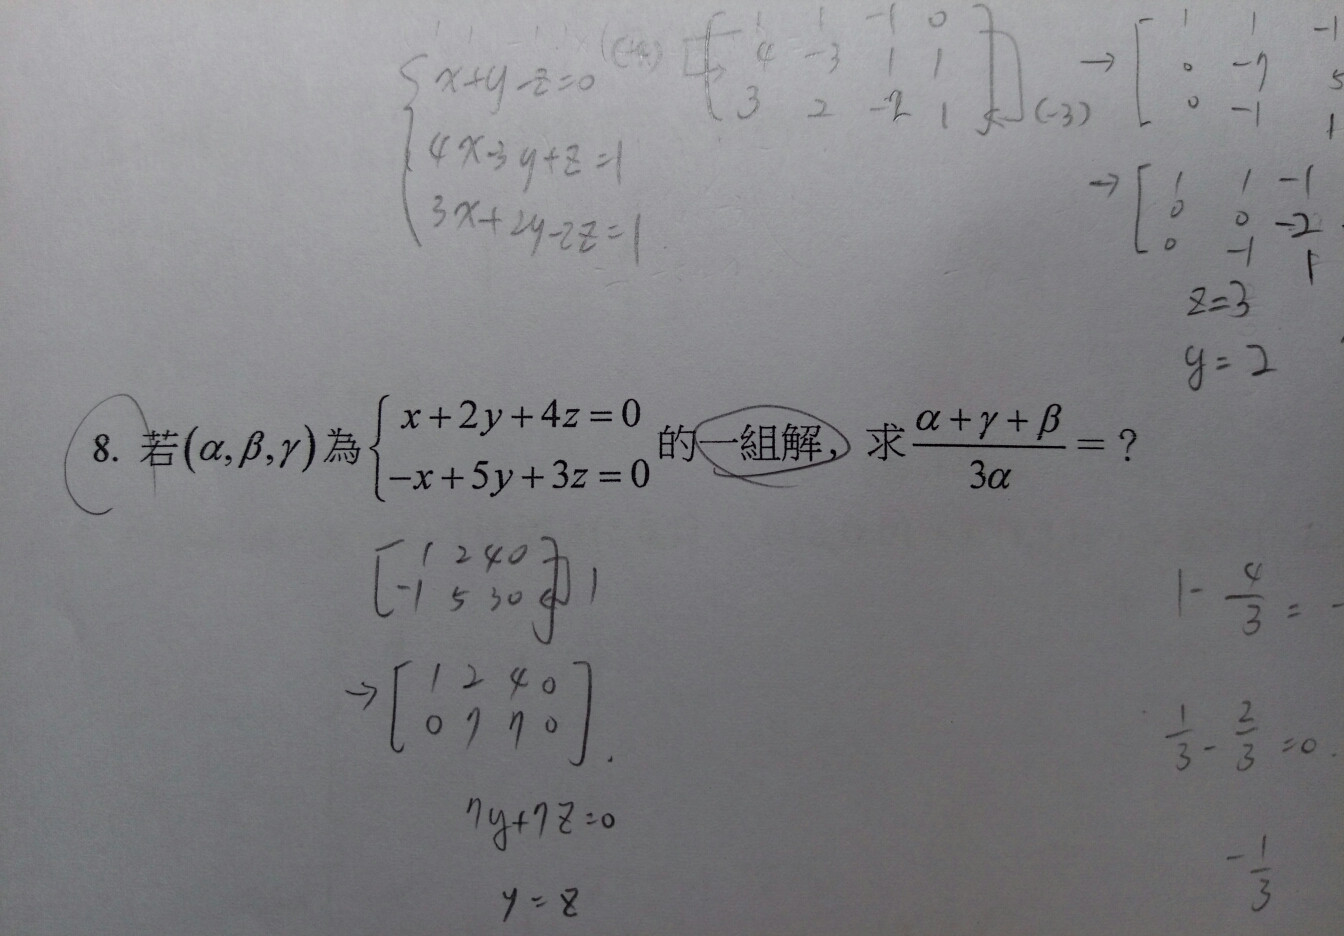 x+y-z=0
4x-3y+z=1
3x+2y-2z=1
1 1 -1 0
4 -3 1 1
3 2 -2 1
(-3)
→
1 1 -1
0 -7 5
0 -1 1
→
1 1 -1
0 0 -2
0 -1 1
z=3
y=2
8. 若(α,β,γ)為{x+2y+4z=0 的一組解,求 (α+γ+β)/3α = ?
-x+5y+3z=0
1 2 4 0
-1 5 3 0
1
→
1 2 4 0
0 7 7 0
7y+7z=0
y=z
1-4/3=
1/3-2/3=0
-1/3